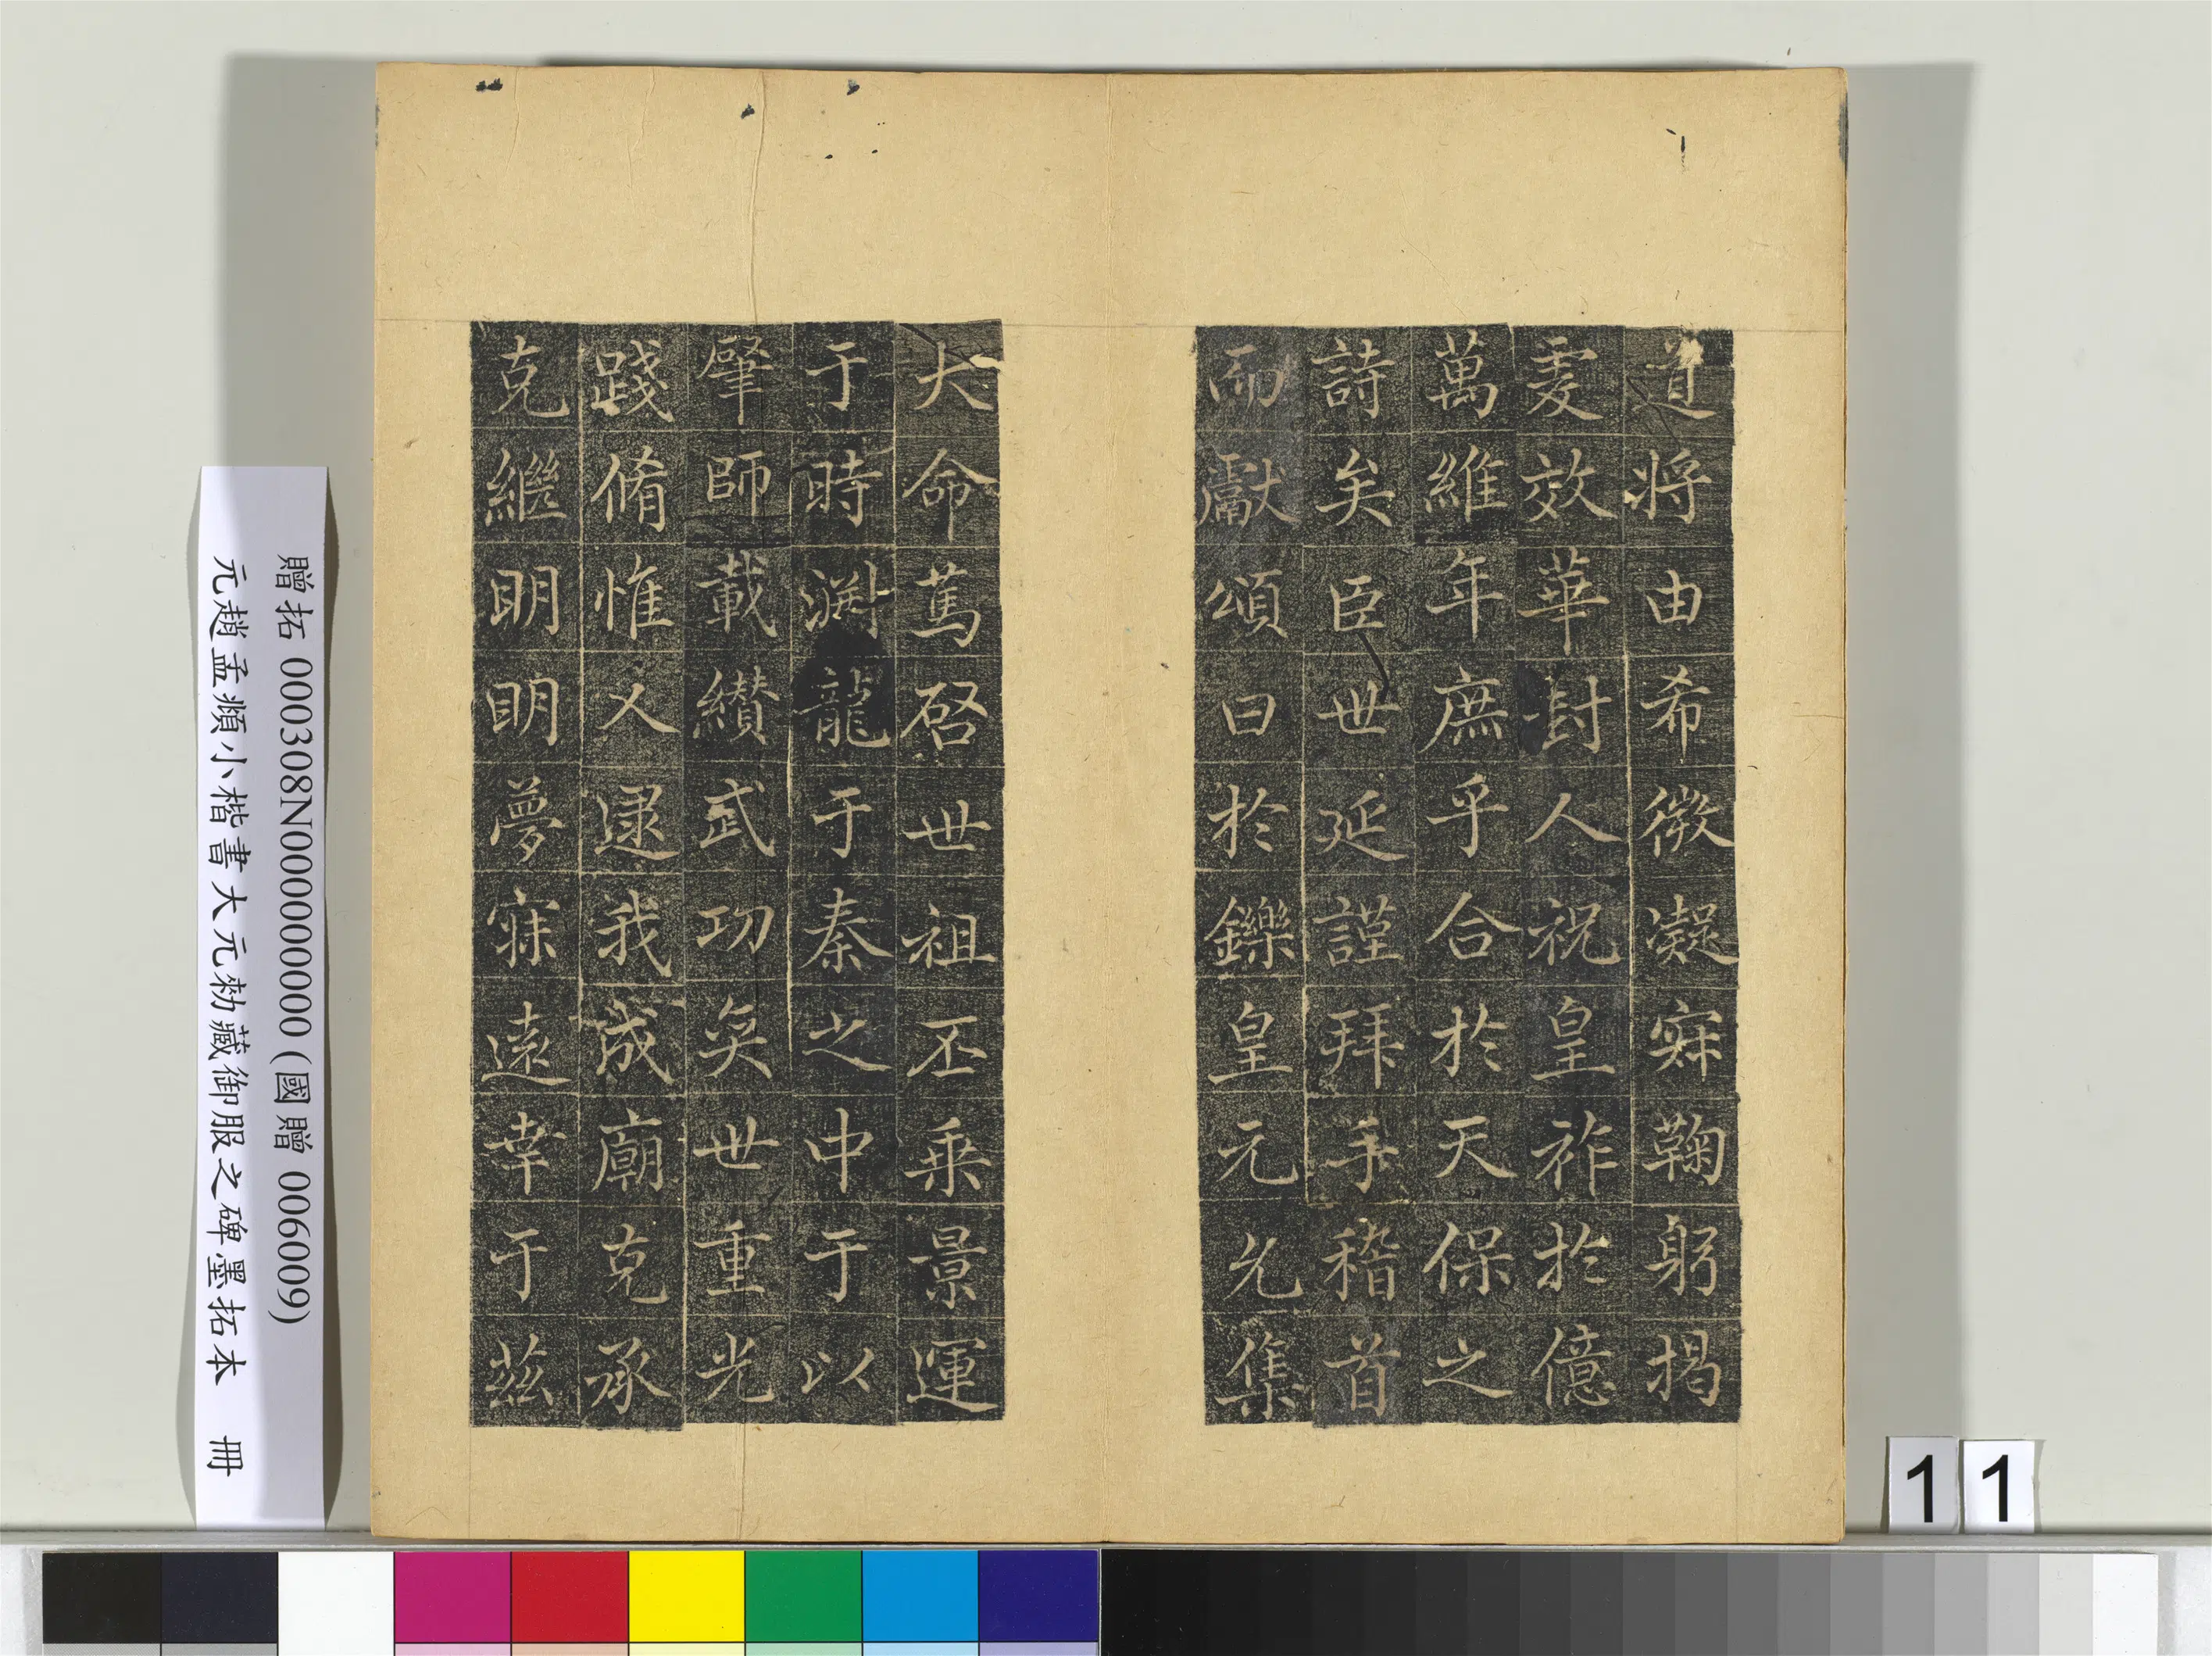 道將由希微凝寂鞠躬揭
虔效華封人祝皇祚於億
萬維年庶乎合於天保之
詩矣臣世延謹拜手稽首
而獻頌曰於鑠皇元允集
大命篤啓世祖丕乘景運
于時淵龍于秦之中于以
肇師載纘武功奕世重光
踐脩惟乂逮我成廟克承
克繼明明夢寐遠幸于茲
贈拓 000308N000000000 (國贈 006009)
元趙孟頫小楷書大元勅藏御服之碑墨拓本 冊
11